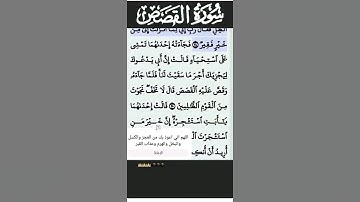 سورة القصص
خَيْرٍ فَقِيرٌ ۝ فَجَآءَتْهُ إِحْدَىٰهُمَا تَمْشِى
عَلَى ٱسْتِحْيَآءٍ قَالَتْ إِنَّ أَبِى يَدْعُوكَ
لِيَجْزِيَكَ أَجْرَ مَا سَقَيْتَ لَنَا فَلَمَّا جَآءَهُ
وَقَصَّ عَلَيْهِ ٱلْقَصَصَ قَالَ لَا تَخَفْ نَجَوْتَ
مِنَ ٱلْقَوْمِ ٱلظَّٰلِمِينَ ۝ قَالَتْ إِحْدَىٰهُمَا
يَٰٓأَبَتِ ٱسْتَـْٔجِرْهُ إِنَّ خَيْرَ مَنِ
ٱسْتَـْٔجَرْتَ
اللهم اني اعوذ بك من العجز والكسل
والبخل والهرم وعذاب القبر
أُرِيدُ أَنْ